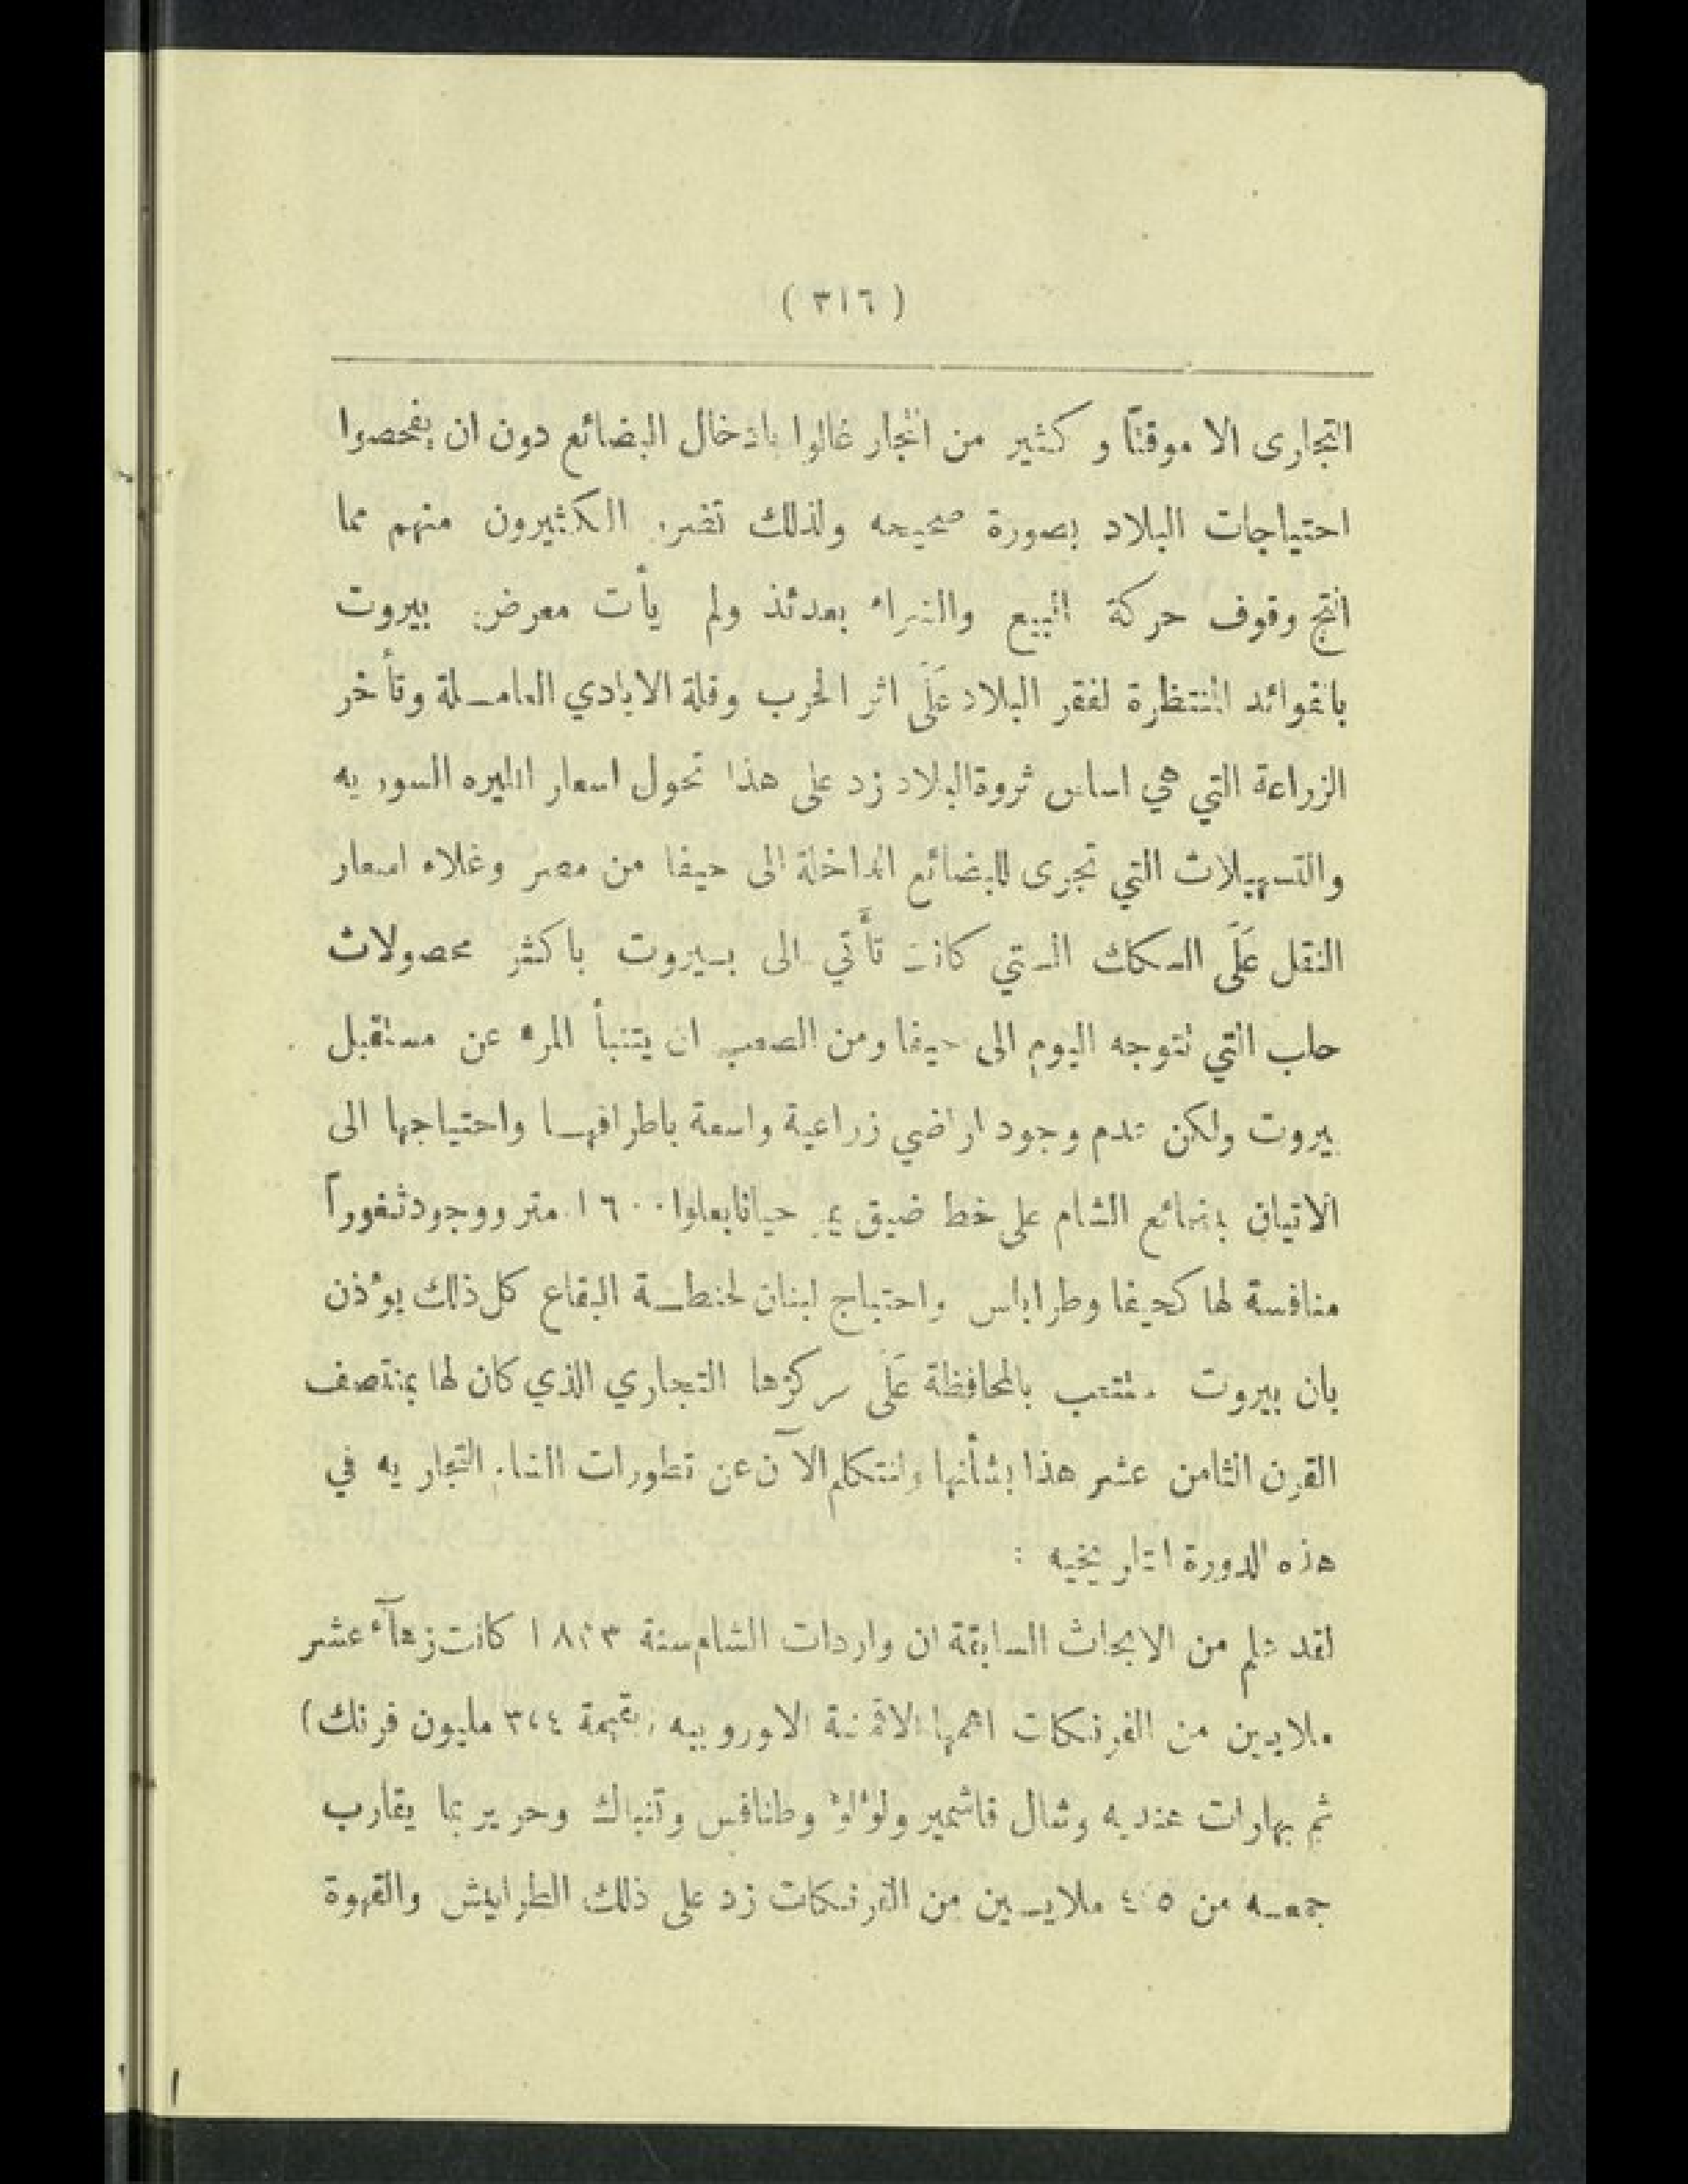 ( ٣١٦ )
التجارى الا موقتاً و كثير من التجار غالوا بادخال البضائع دون ان يفحصوا
احتياجات البلاد بصورة صحيحه ولذلك تضرر الكثيرون منهم مما
انتج وقوف حركة البيع والشراء بعدئذ ولم يأت معرض بيروت
بالفوائد المنتظرة لفقر البلاد عَلَى اثر الحرب وقلة الايادي العاملة وتأخر
الزراعة التي هي اساس ثروةالبلاد زد على هذا تحول اسعار الليره السوريه
والتسهيلات التي تجرى للبضائع الداخلة الى حيفا من مصر وغلاء اسعار
النقل عَلَى السكك التي كانت تأتي الى بيروت باكثر محصولات
حلب التي تتوجه اليوم الى حيفا ومن الصعب ان يتنبأ المرء عن مستقبل
بيروت ولكن عدم وجود اراضي زراعية واسعة باطرافها واحتياجها الى
الاتيان ببضائع الشام على خط ضيق يمر احيانابعلو ١٦٠٠ متر ووجودثغوراً
منافسة لها كحيفا وطرابلس واحتياج لبنان لحنطة البقاع كل ذلك يؤذن
بان بيروت ستتعب بالمحافظة عَلَى مركزها التجاري الذي كان لها بمنتصف
القرن الثامن عشر هذا بشأنها ولنتكلم الآن عن تطورات الشام التجاريه في
هذه الدورة التاريخيه :
لقد علم من الابحاث السابقة ان واردات الشام سنة كانت زهآء عشر
ملايين من الفرنكات اهمها الاقمشة الاوروبيه (بقيمة ٣،٤ مليون فرنك)
ثم بهارات هنديه وشال قاشمير ولؤلؤ وطنافس وتنباك وحرير بما يقارب
جمعه من ٤،٥ ملايين من الفرنكات زد على ذلك الطرابيش والقهوة